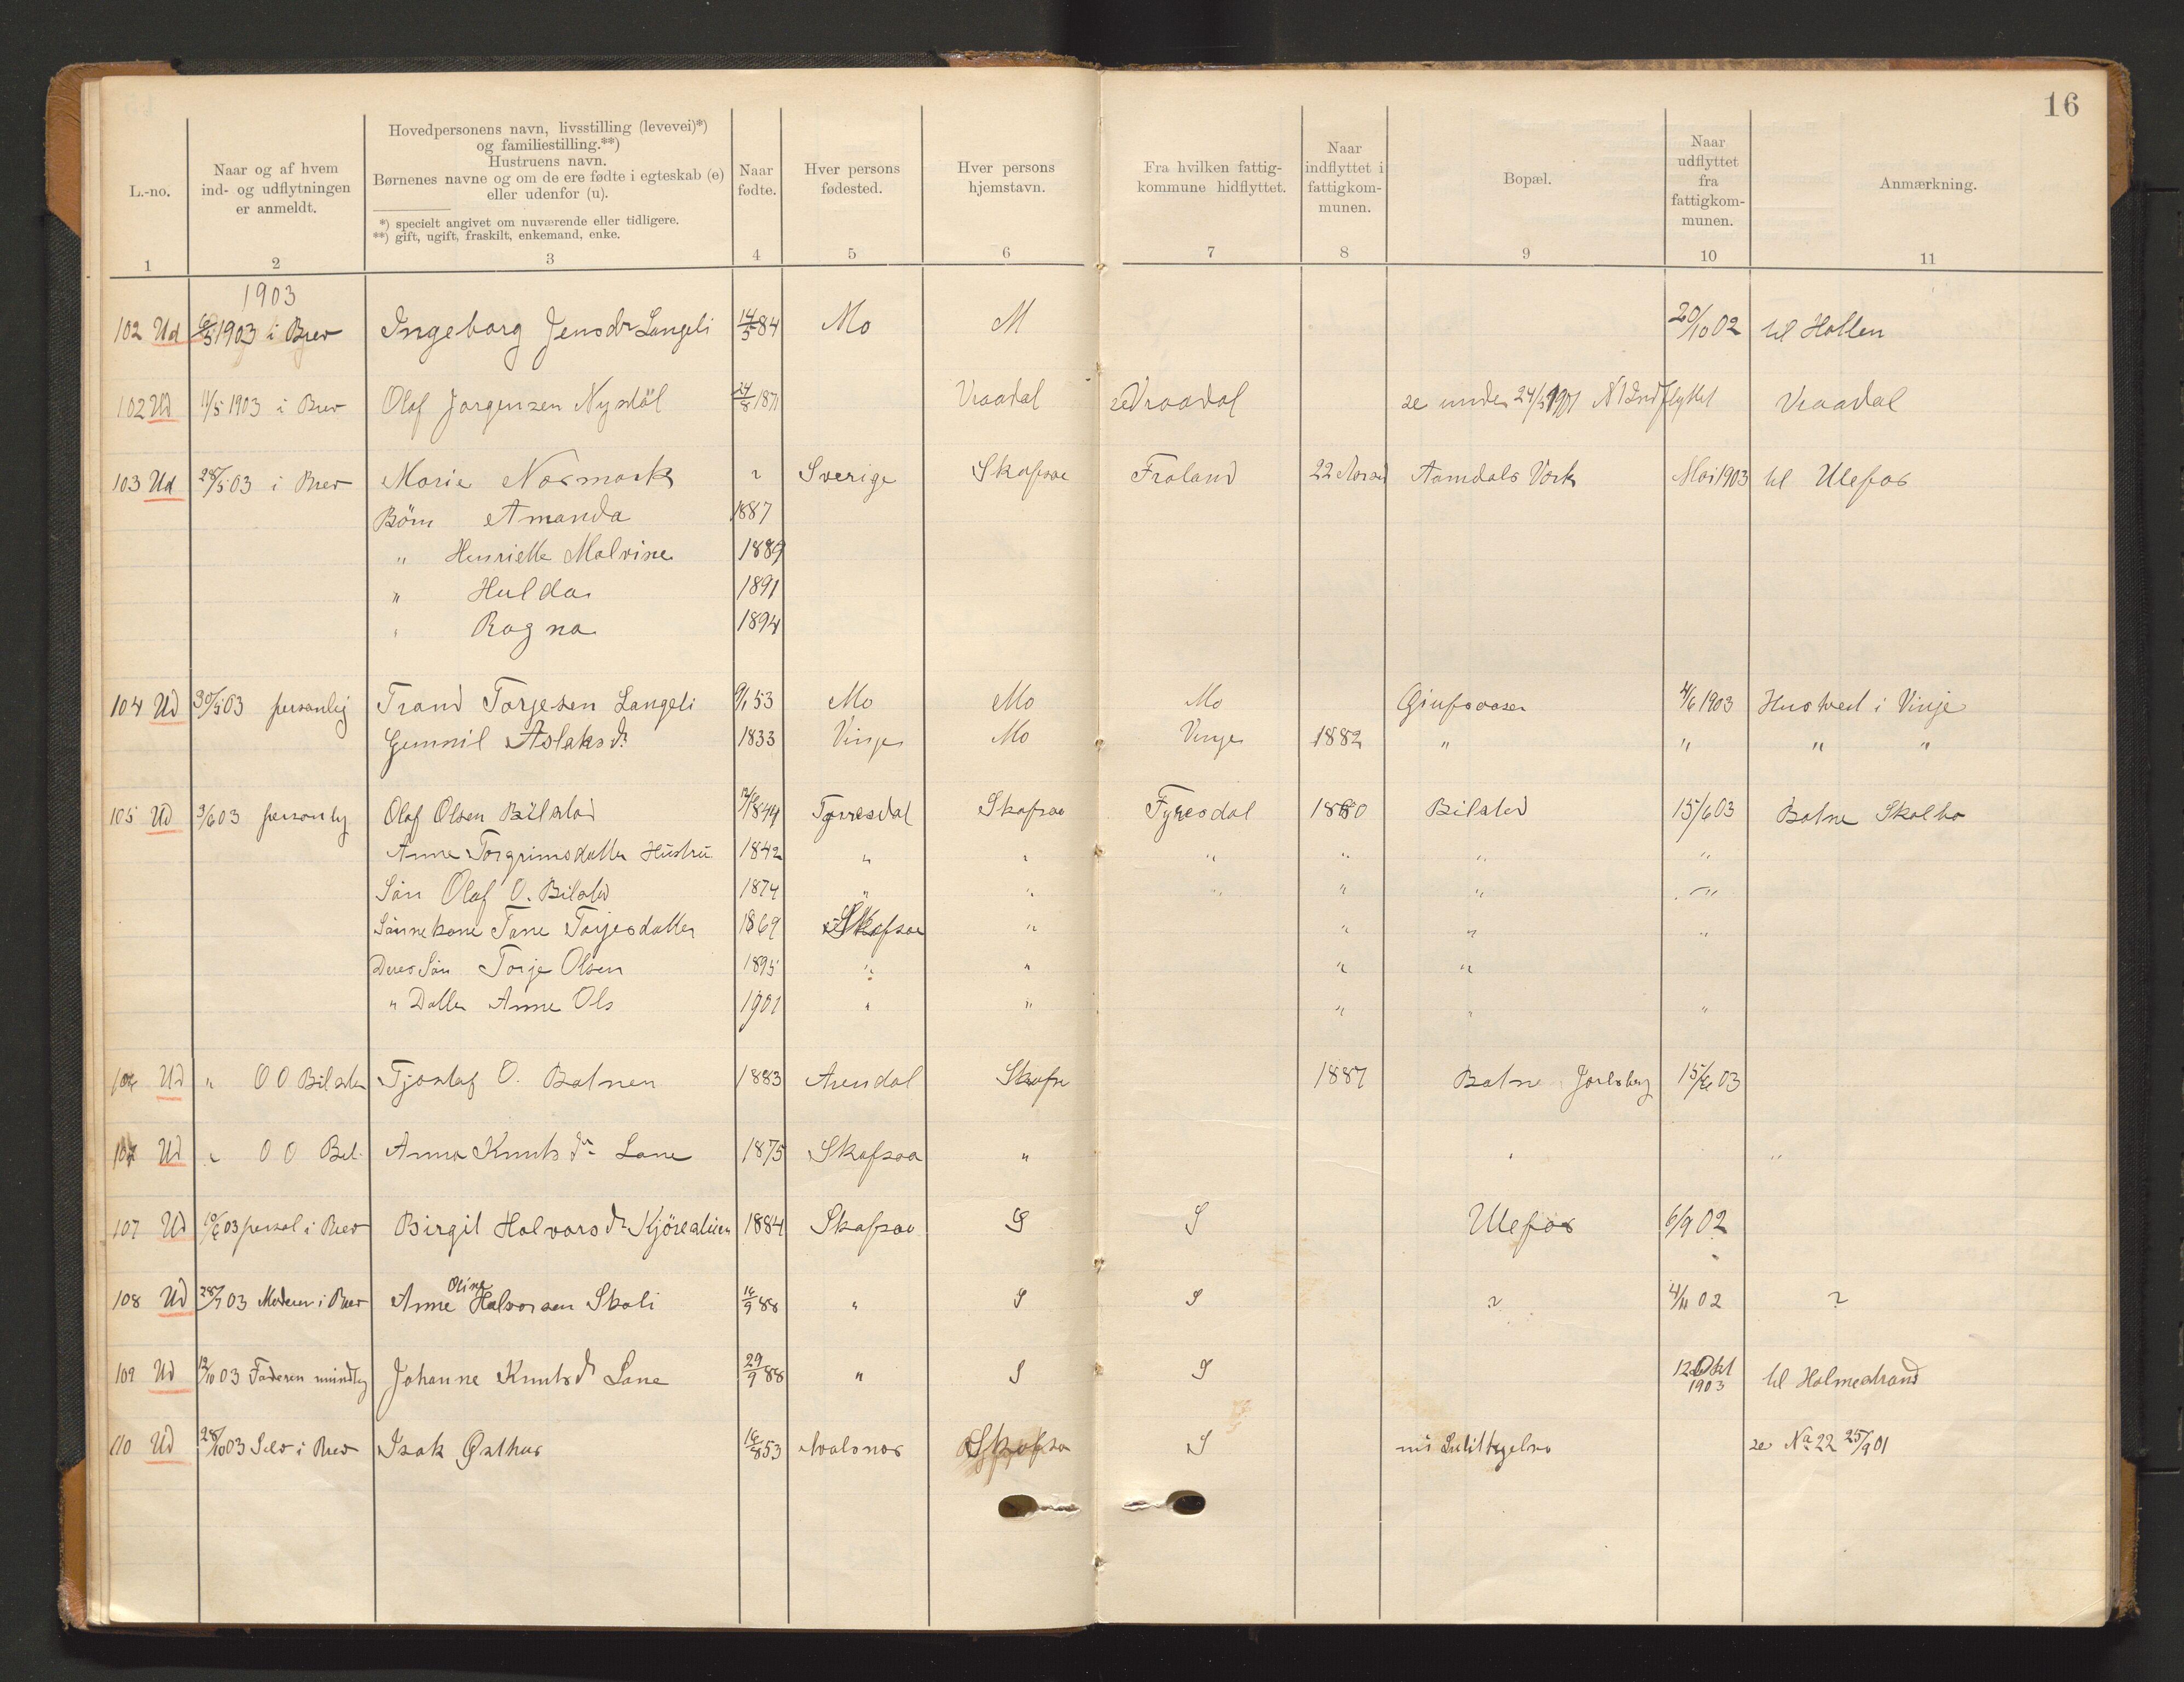 16
L.-no.
Naar og af hvem
ind- og udflytningen
er anmeldt.
Hovedpersonens navn, livsstilling (levevei)*)
og familiestilling.**)
Hustruens navn.
Børnenes navne og om de ere fødte i egteskab (e)
eller udenfor (u).
*) specielt angivet om nuværende eller tidligere.
**) gift, ugift, fraskilt, enkemand, enke.
Naar
fødte.
Hver persons
fødested.
Hver persons
hjemstavn.
Fra hvilken fattig-
kommune hidflyttet.
Naar
indflyttet i
fattigkom-
munen.
Bopæl.
Naar
udflyttet
fra
fattigkom-
munen.
Anmærkning.
1 2 3 4 5 6 7 8 9 10 11
1903
102 Ud 6/5 1903 i Brev Ingeborg Jensdr Langeli 14/5 84 Mo M 20/10 02 til Hollen
102 Ud 11/5 1903 i Brev Olaf Jørgensen Nystøl 24/8 1871 Vraadal Vraadal se under 24/5 1901 Indflyttet Vraadal
103 Ud 28/5 03 i Brev Marie Normark " Sverige Skafsaa Froland 22 Aamdals Værk Mai 1903 til Ulefos
Børn Amanda 1887
" Henriette Malvine 1889
" Hulda 1891
" Ragna 1894
104 Ud 30/5 03 personlig Trond Torjesen Langeli 9/1 53 Mo Mo Mo 4/6 1903 Hustved i Vinje
Gunnil Aslaksdr 1833 Vinje Mo Vinje 1882 " " " "
105 Ud 3/6 03 personlig Olaf Olsen Bilstad 1844 Fyresdal Skafsaa Fyresdal 1880 Bilstad 15/6 03 Botne
Anne Torgrimsdatter Hustru 1842 " " " " " "
Søn Olaf O. Bilstad 1874 " " " " " "
Sønnekone Tone Torjesdatter 1869 Skafsaa " " " "
Deres Søn Torje Olsen 1895 " " " "
" Datter Anne Ols 1901 " " " " "
106 Ud " O O Bilstad Tjostaf O. Botnen 1883 Arendal Skafs 1887 Botne Jarlsberg 15/6 03
107 Ud " O O Bil. Anna Knutsdr Lane 1875 Skafsaa " " "
107 Ud 10/6 03 i Brev Birgit Halvorsdr 1884 Skafsaa S S Ulefos 6/9 02
108 Ud 28/7 03 Moderen i Brev Anne Oline Halvorsen Skoli 16/9 88 " S S ? 4/11 02 ?
109 Ud 12/10 03 Faderen mundtlig Johanne Knutsdr Lane 29/9 88 " S S 12 Okt 1903 til Holmestrand
110 Ud 28/10 03 Selv i Brev Isak Østhus 16/8 53 Skafsaa S nu se No 22 25/9 01